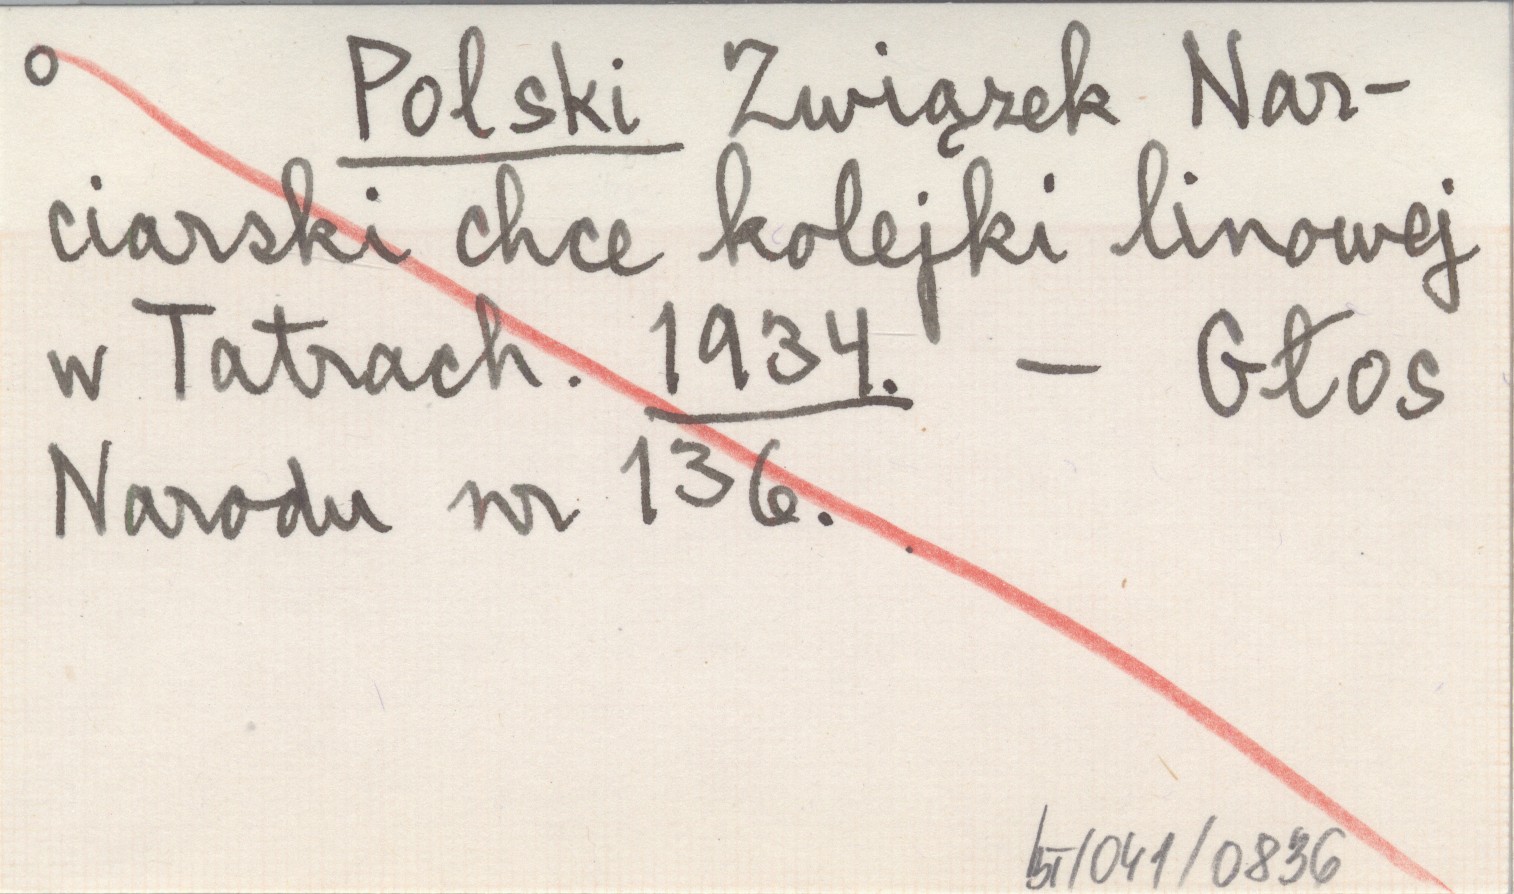 o Polski Związek Nar-
ciarski chce kolejki linowej
w Tatrach. 1934. – Głos
Narodu nr 136.
/041/0836